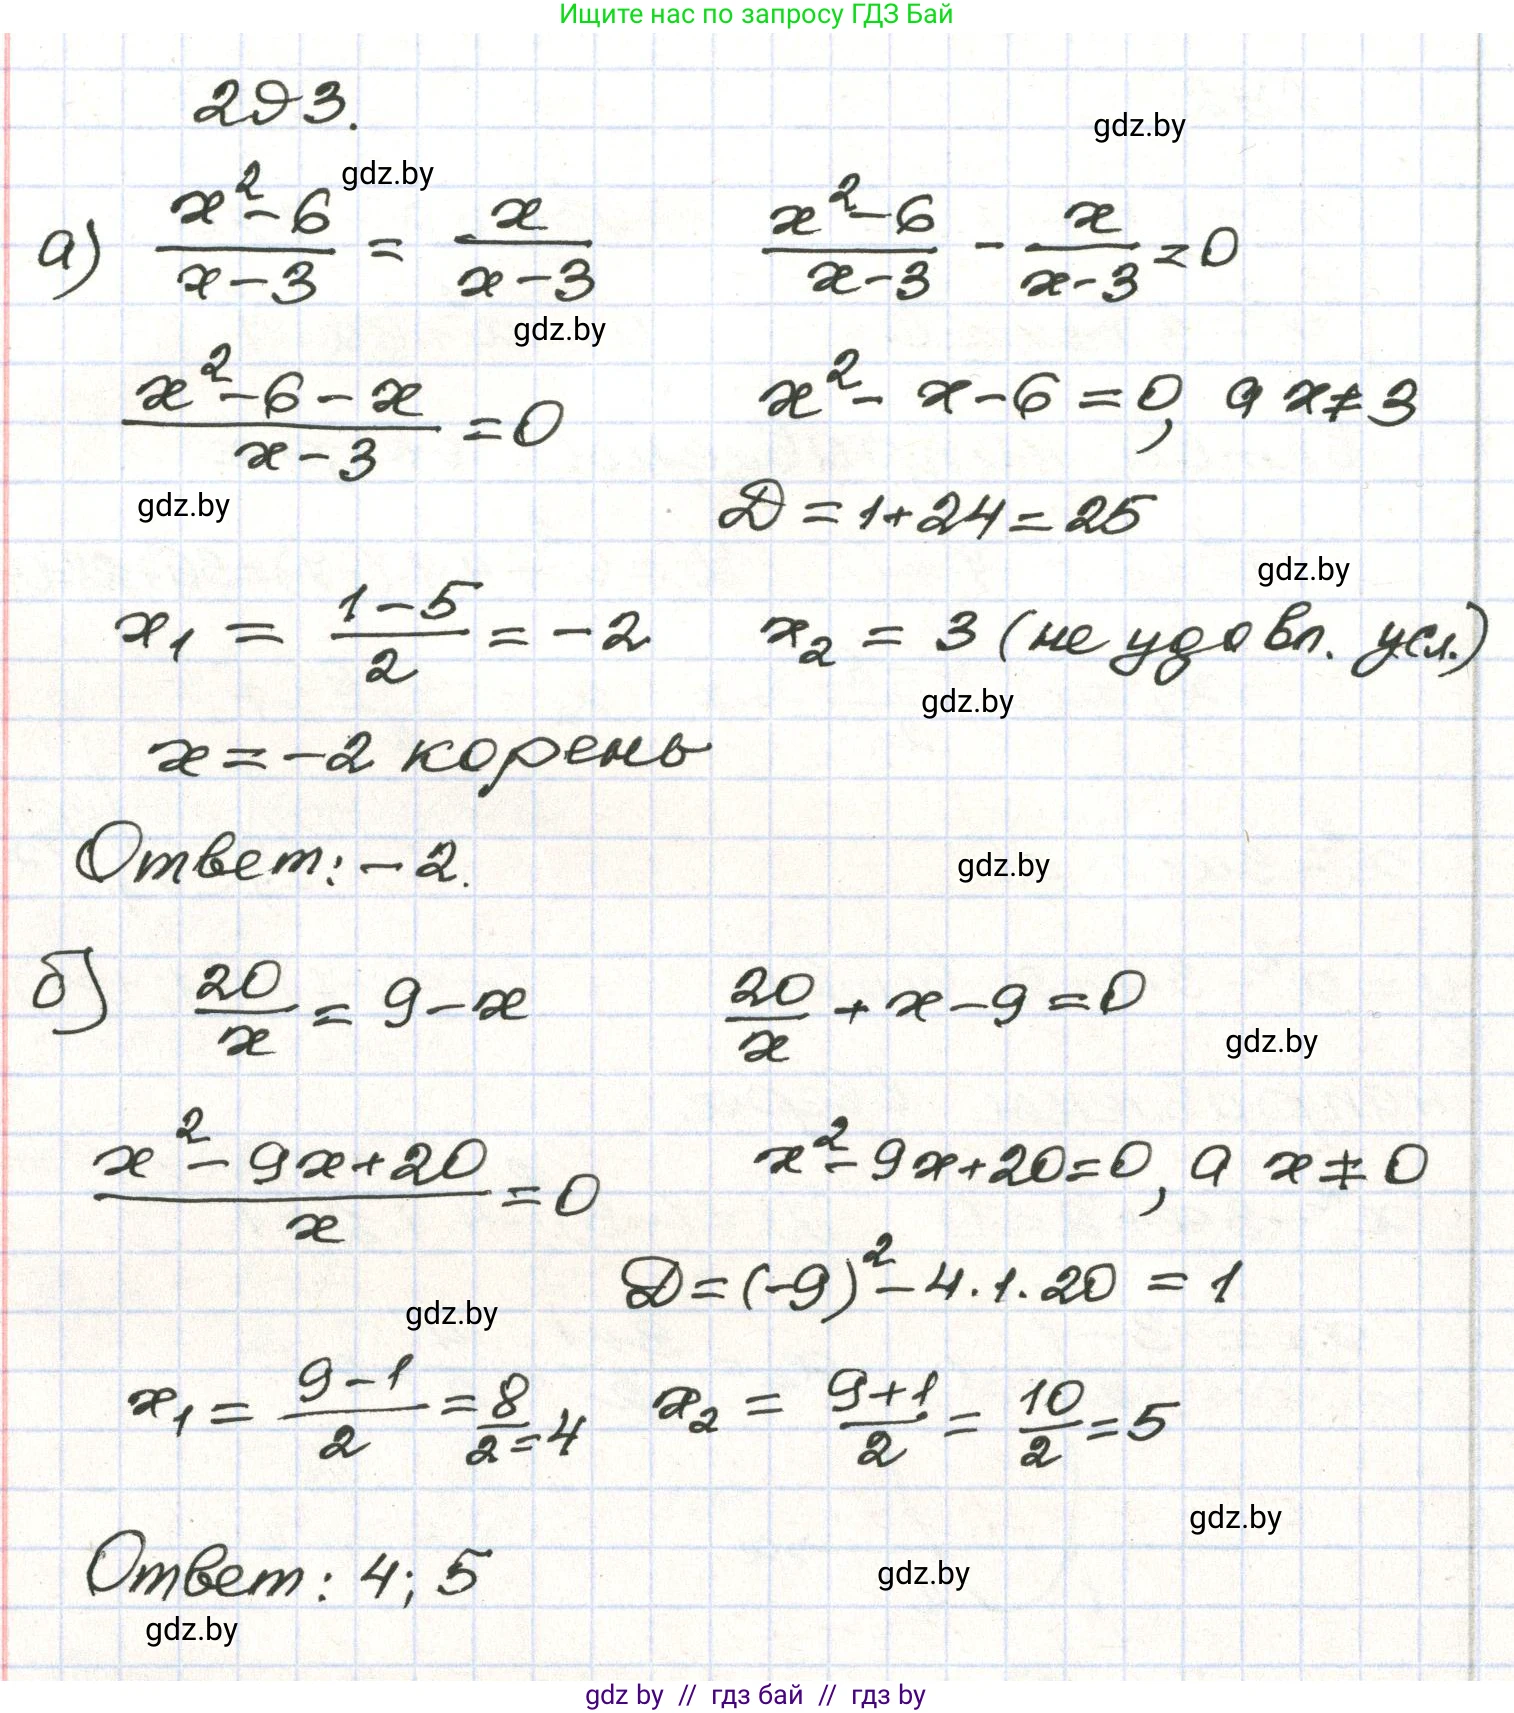 Ищите нас по запросу ГДЗ Бай
293.
gdz.by
gdz.by
а) (x²-6)/(x-3) = x/(x-3)    (x²-6)/(x-3) - x/(x-3) = 0
gdz.by
(x²-6-x)/(x-3) = 0    x²-x-6=0, а x≠3
gdz.by
D=1+24=25
gdz.by
x₁ = (1-5)/2 = -2    x₂ = 3 (не удовл. усл.)
gdz.by
x=-2 корень
Ответ: -2.
gdz.by
б) 20/x = 9-x    20/x + x-9=0
gdz.by
(x²-9x+20)/x = 0    x²-9x+20=0, а x≠0
D=(-9)²-4·1·20 = 1
gdz.by
x₁ = (9-1)/2 = 8/2 = 4    x₂ = (9+1)/2 = 10/2 = 5
gdz.by
Ответ: 4; 5
gdz.by
gdz.by
gdz by // гдз бай // гдз by